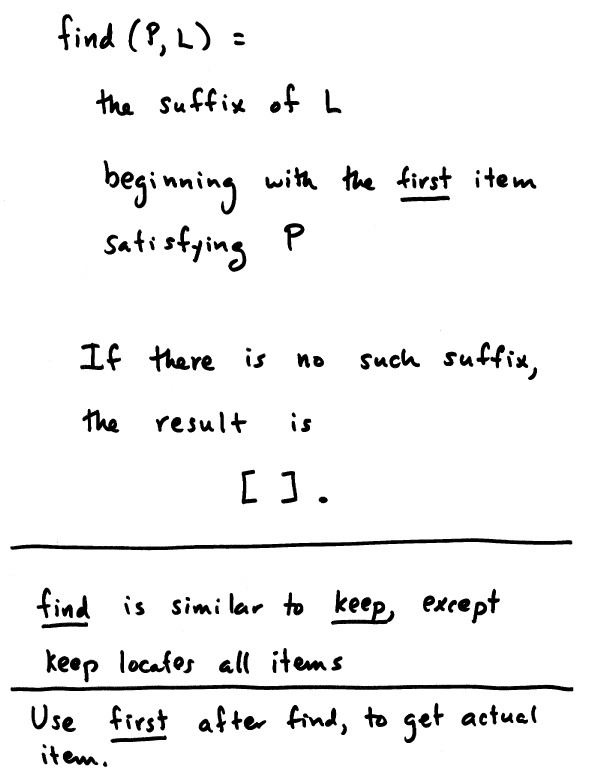 find (P, L) =
the suffix of L
beginning with the first item
satisfying P
If there is no such suffix,
the result is
[ ].
find is similar to keep, except
keep locates all items
Use first after find, to get actual
item.